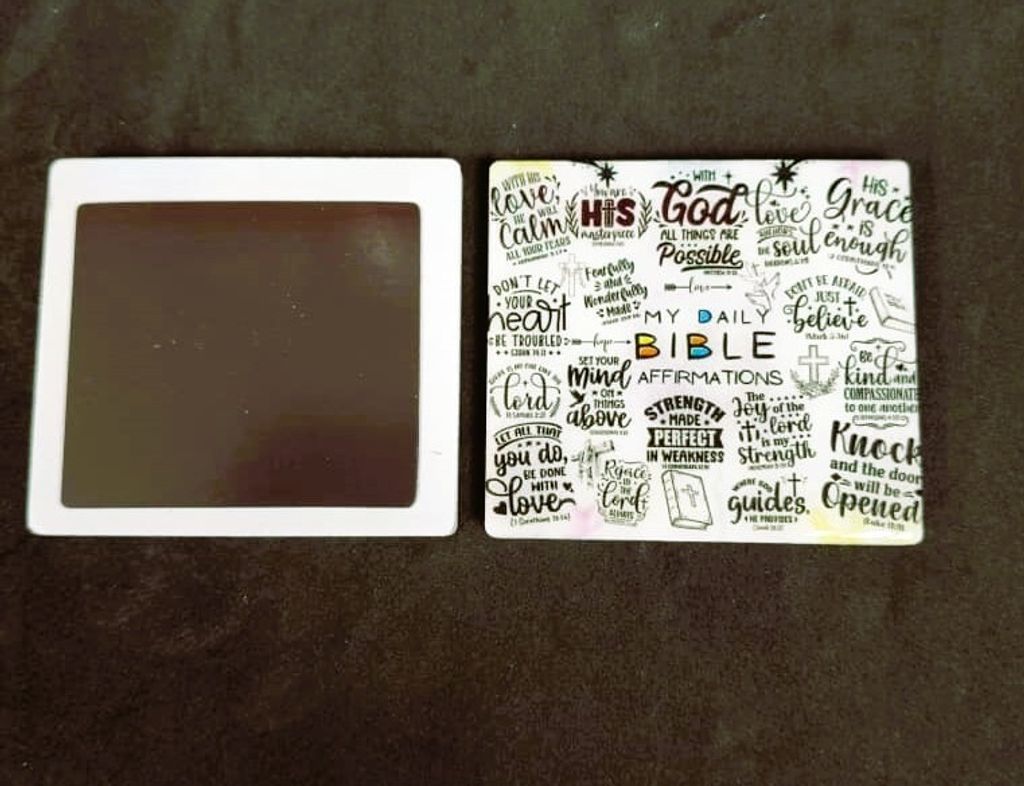 WITH HIS
love,
HE WILL
Calm
ALL YOUR FEARS
You are
HIS
masterpiece
WITH
God
ALL THINGS ARE
Possible
love
ANCHORS
THE soul
HIS
Grace
IS
enough
DON'T LET
YOUR
heart
BE TROUBLED
Fearfully
and
Wonderfully
Made
love
DON'T BE AFRAID
JUST
believe
MY DAILY
BIBLE
AFFIRMATIONS
hope
SET YOUR
Mind
ON
THINGS
above
BE
kind and
COMPASSIONATE
to one another
lord
LET ALL THAT
you do,
BE DONE
WITH
love
STRENGTH
MADE
PERFECT
IN WEAKNESS
The
Joy of the
lord
is my
Strength
Knock
and the door
will be
Opened
Rejoice
IN THE
lord
ALWAYS
WHERE GOD
guides,
HE PROVIDES